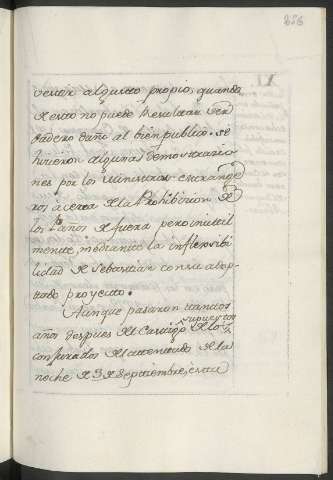 256
vener algusto propio, quando
de esto no puede resultar ver
dadero daño al bien publico. Se
hicieron algunas demostracio
nes por los Ministros estrange
ros acerca de la Prohibicion de
los Paños de fuera pero inutil
mente, mediante la inflexibi
lidad de Sebastian con su adop
tado proyecto.
Aunque pasaron tantos
años despues del Castigo de los supuestos
conjurados del attentado de la
noche de 3 de Septiembre, esta